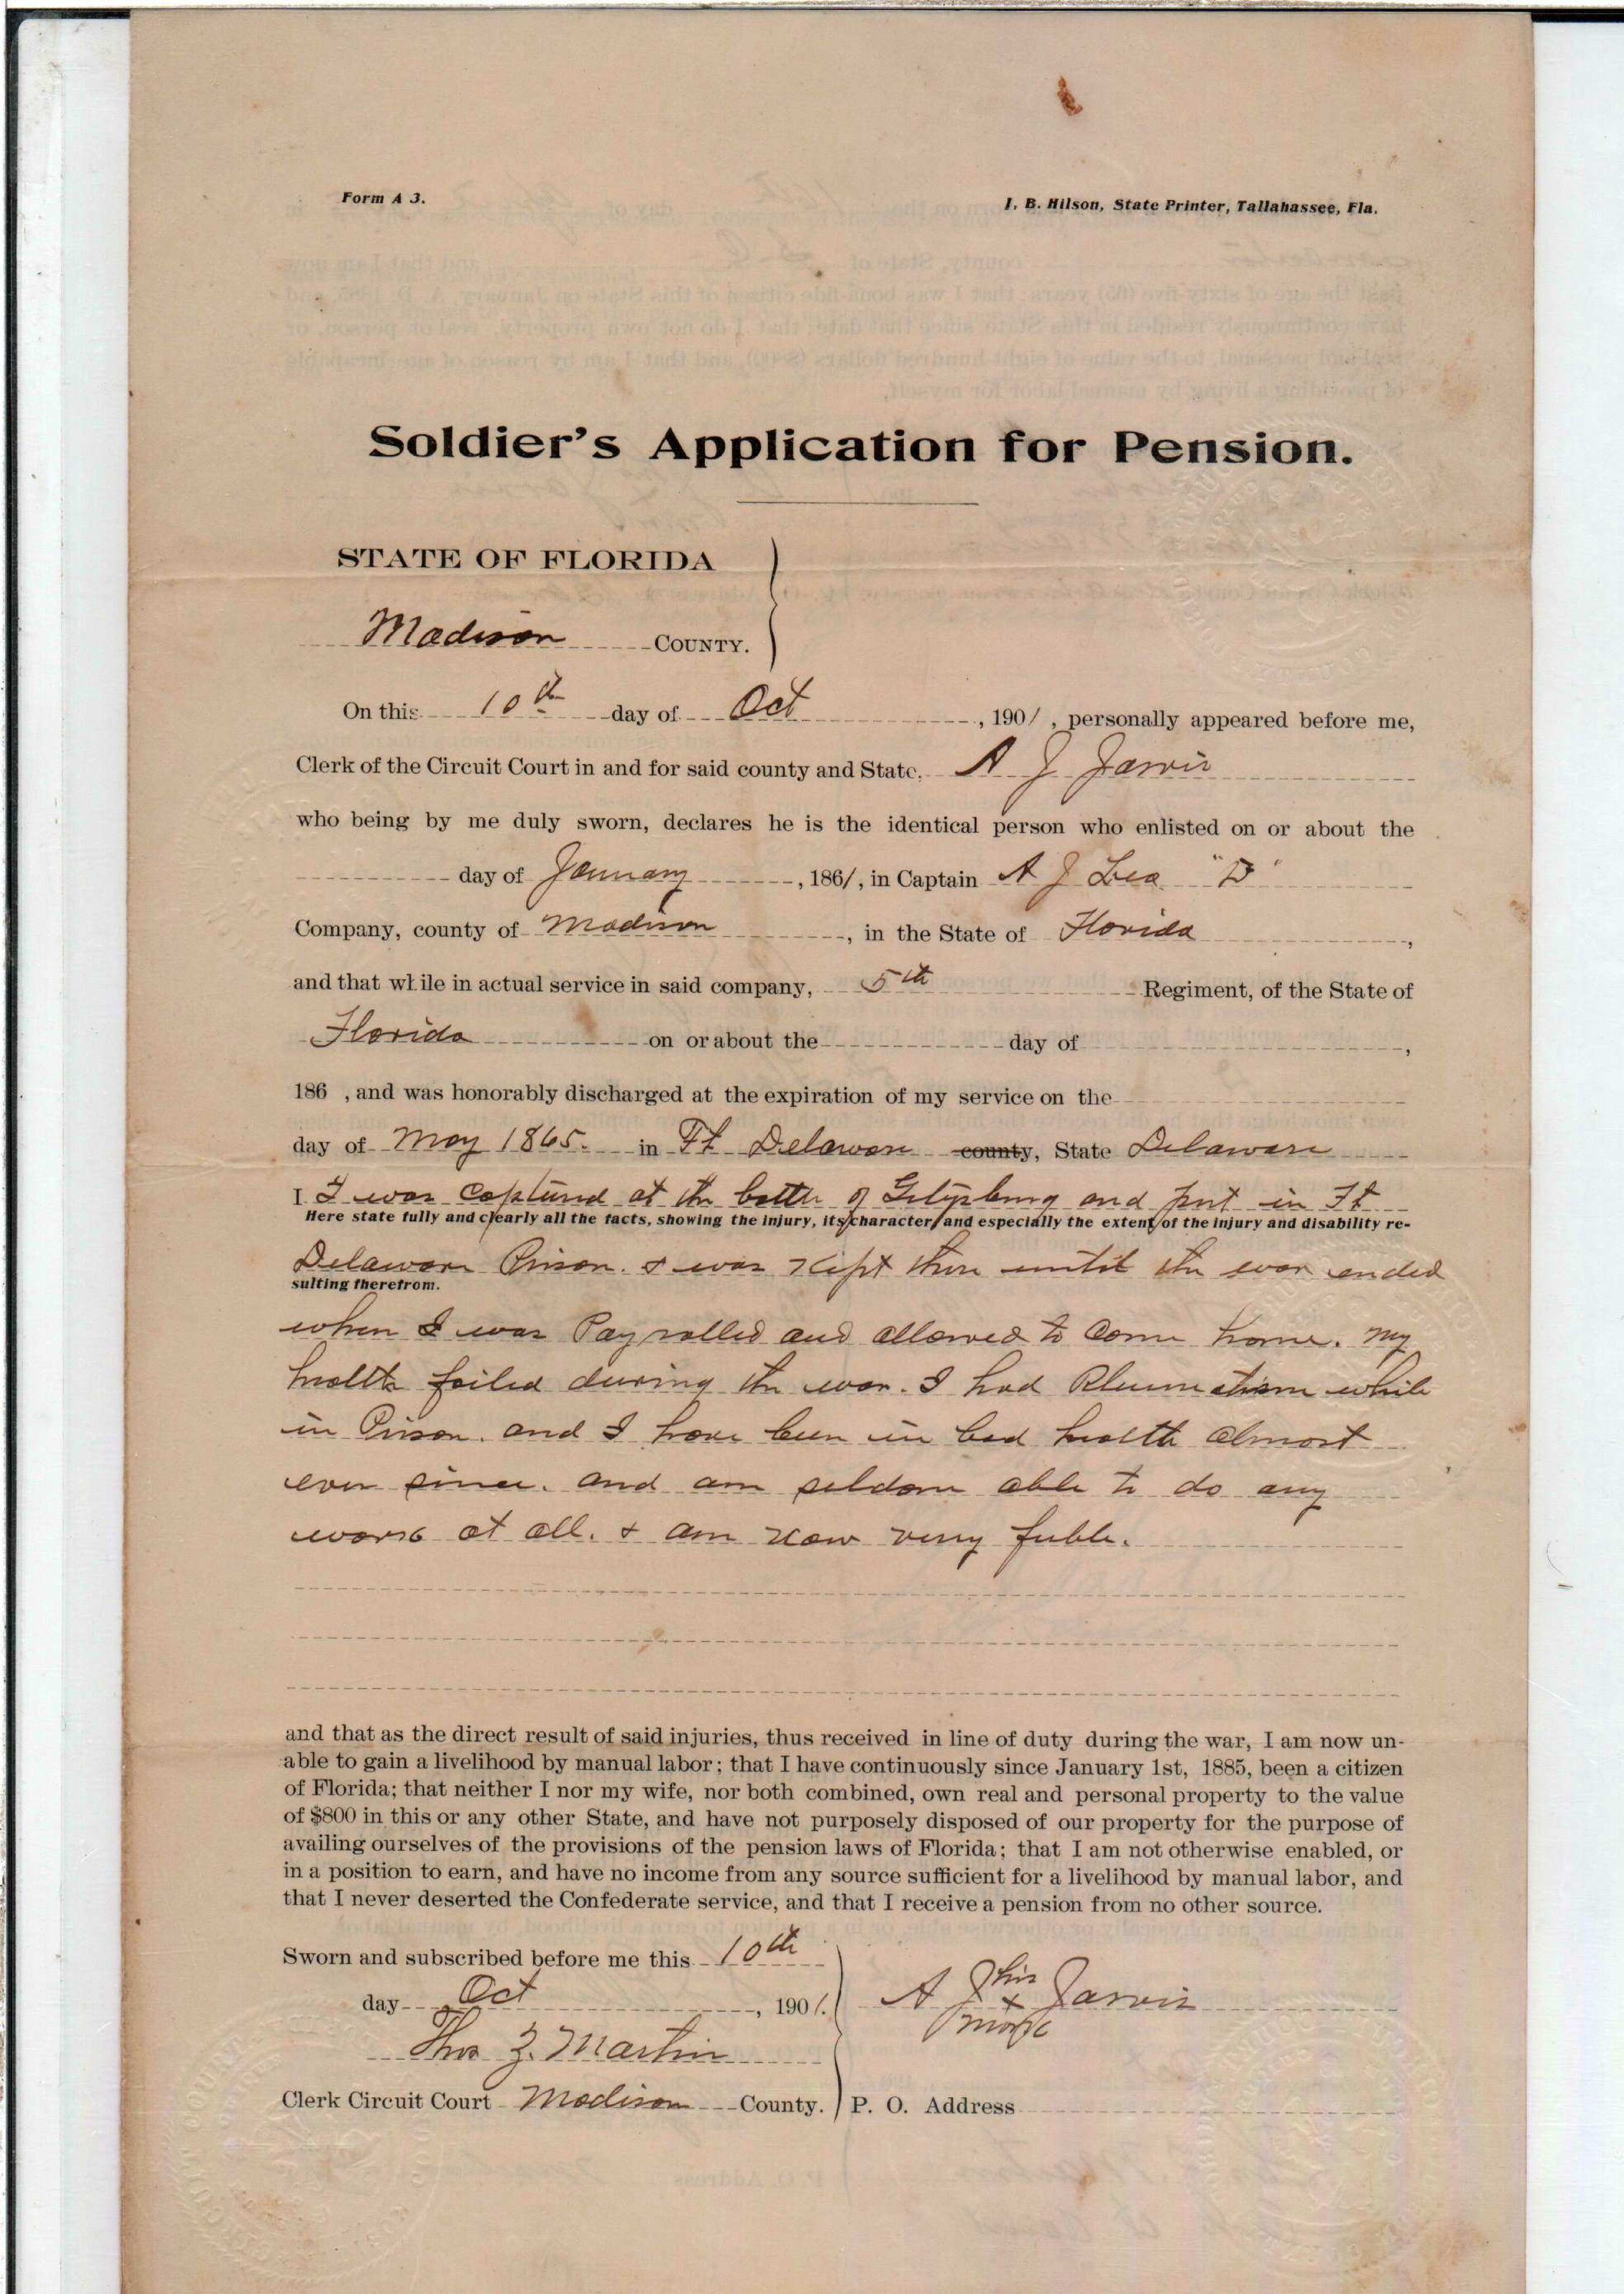 Form A 3.
I. B. Hilson, State Printer, Tallahassee, Fla.
Soldier's Application for Pension.
STATE OF FLORIDA
Madison COUNTY.
On this 10th day of Oct , 1901 , personally appeared before me,
Clerk of the Circuit Court in and for said county and State, A J Jarvis
who being by me duly sworn, declares he is the identical person who enlisted on or about the
day of January , 1861, in Captain A J Lea "D"
Company, county of Madison , in the State of Florida ,
and that while in actual service in said company, 5th Regiment, of the State of
Florida on or about the day of ,
186 , and was honorably discharged at the expiration of my service on the
day of May 1865. in Ft Delaware county, State Delaware
I I was Captured at the battle of Getysburg and put in Ft
Here state fully and clearly all the facts, showing the injury, its character, and especially the extent of the injury and disability re-
Delaware Prison. & was Kept there until the war ended
sulting therefrom.
when I was Payrolled and allowed to Come home. My
health failed during the war. I had Rheumatism while
in Prison. and I have been in bad health almost
ever since. and am seldom able to do any
work at all. & am now very feeble.
and that as the direct result of said injuries, thus received in line of duty during the war, I am now un-
able to gain a livelihood by manual labor; that I have continuously since January 1st, 1885, been a citizen
of Florida; that neither I nor my wife, nor both combined, own real and personal property to the value
of $800 in this or any other State, and have not purposely disposed of our property for the purpose of
availing ourselves of the provisions of the pension laws of Florida; that I am not otherwise enabled, or
in a position to earn, and have no income from any source sufficient for a livelihood by manual labor, and
that I never deserted the Confederate service, and that I receive a pension from no other source.
Sworn and subscribed before me this 10th
day Oct , 1901.
A J his x mark Jarvis
Thos Z. Martin
Clerk Circuit Court Madison County.
P. O. Address